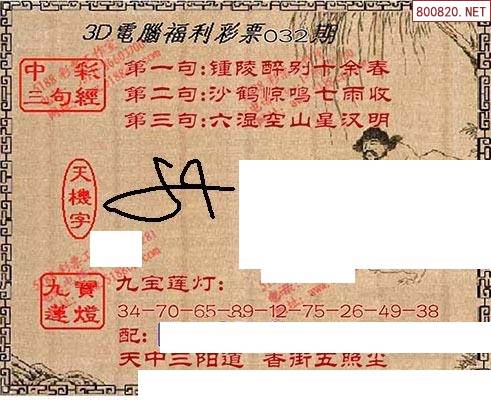 800820.NET
3D電腦福利彩票032期
中彩三句經
第一句:锺陵醉别十余春
第二句:沙鹤惊鸣七雨收
第三句:六湿空山星汉明
天機字
九寶蓮燈
九宝莲灯:
34-70-65-89-12-75-26-49-38
配:
天中三阳道 香街五照尘